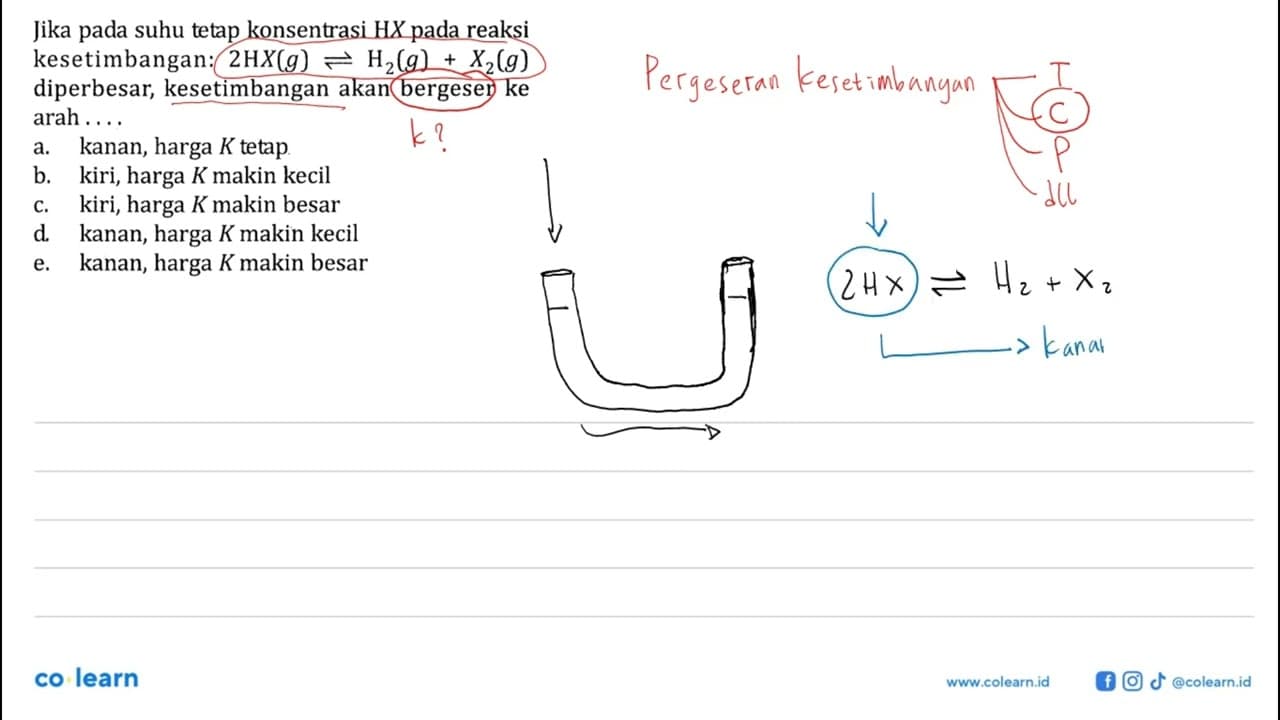 Jika pada suhu tetap konsentrasi HX pada reaksi
kesetimbangan: 2HX(g) ⇌ H₂(g) + X₂(g)
diperbesar, kesetimbangan akan bergeser ke
arah ....
k?
a. kanan, harga K tetap
b. kiri, harga K makin kecil
c. kiri, harga K makin besar
d. kanan, harga K makin kecil
e. kanan, harga K makin besar
Pergeseran kesetimbangan
T
C
P
dll
2HX ⇌ H₂ + X₂
kanan
co learn
www.colearn.id
@colearn.id